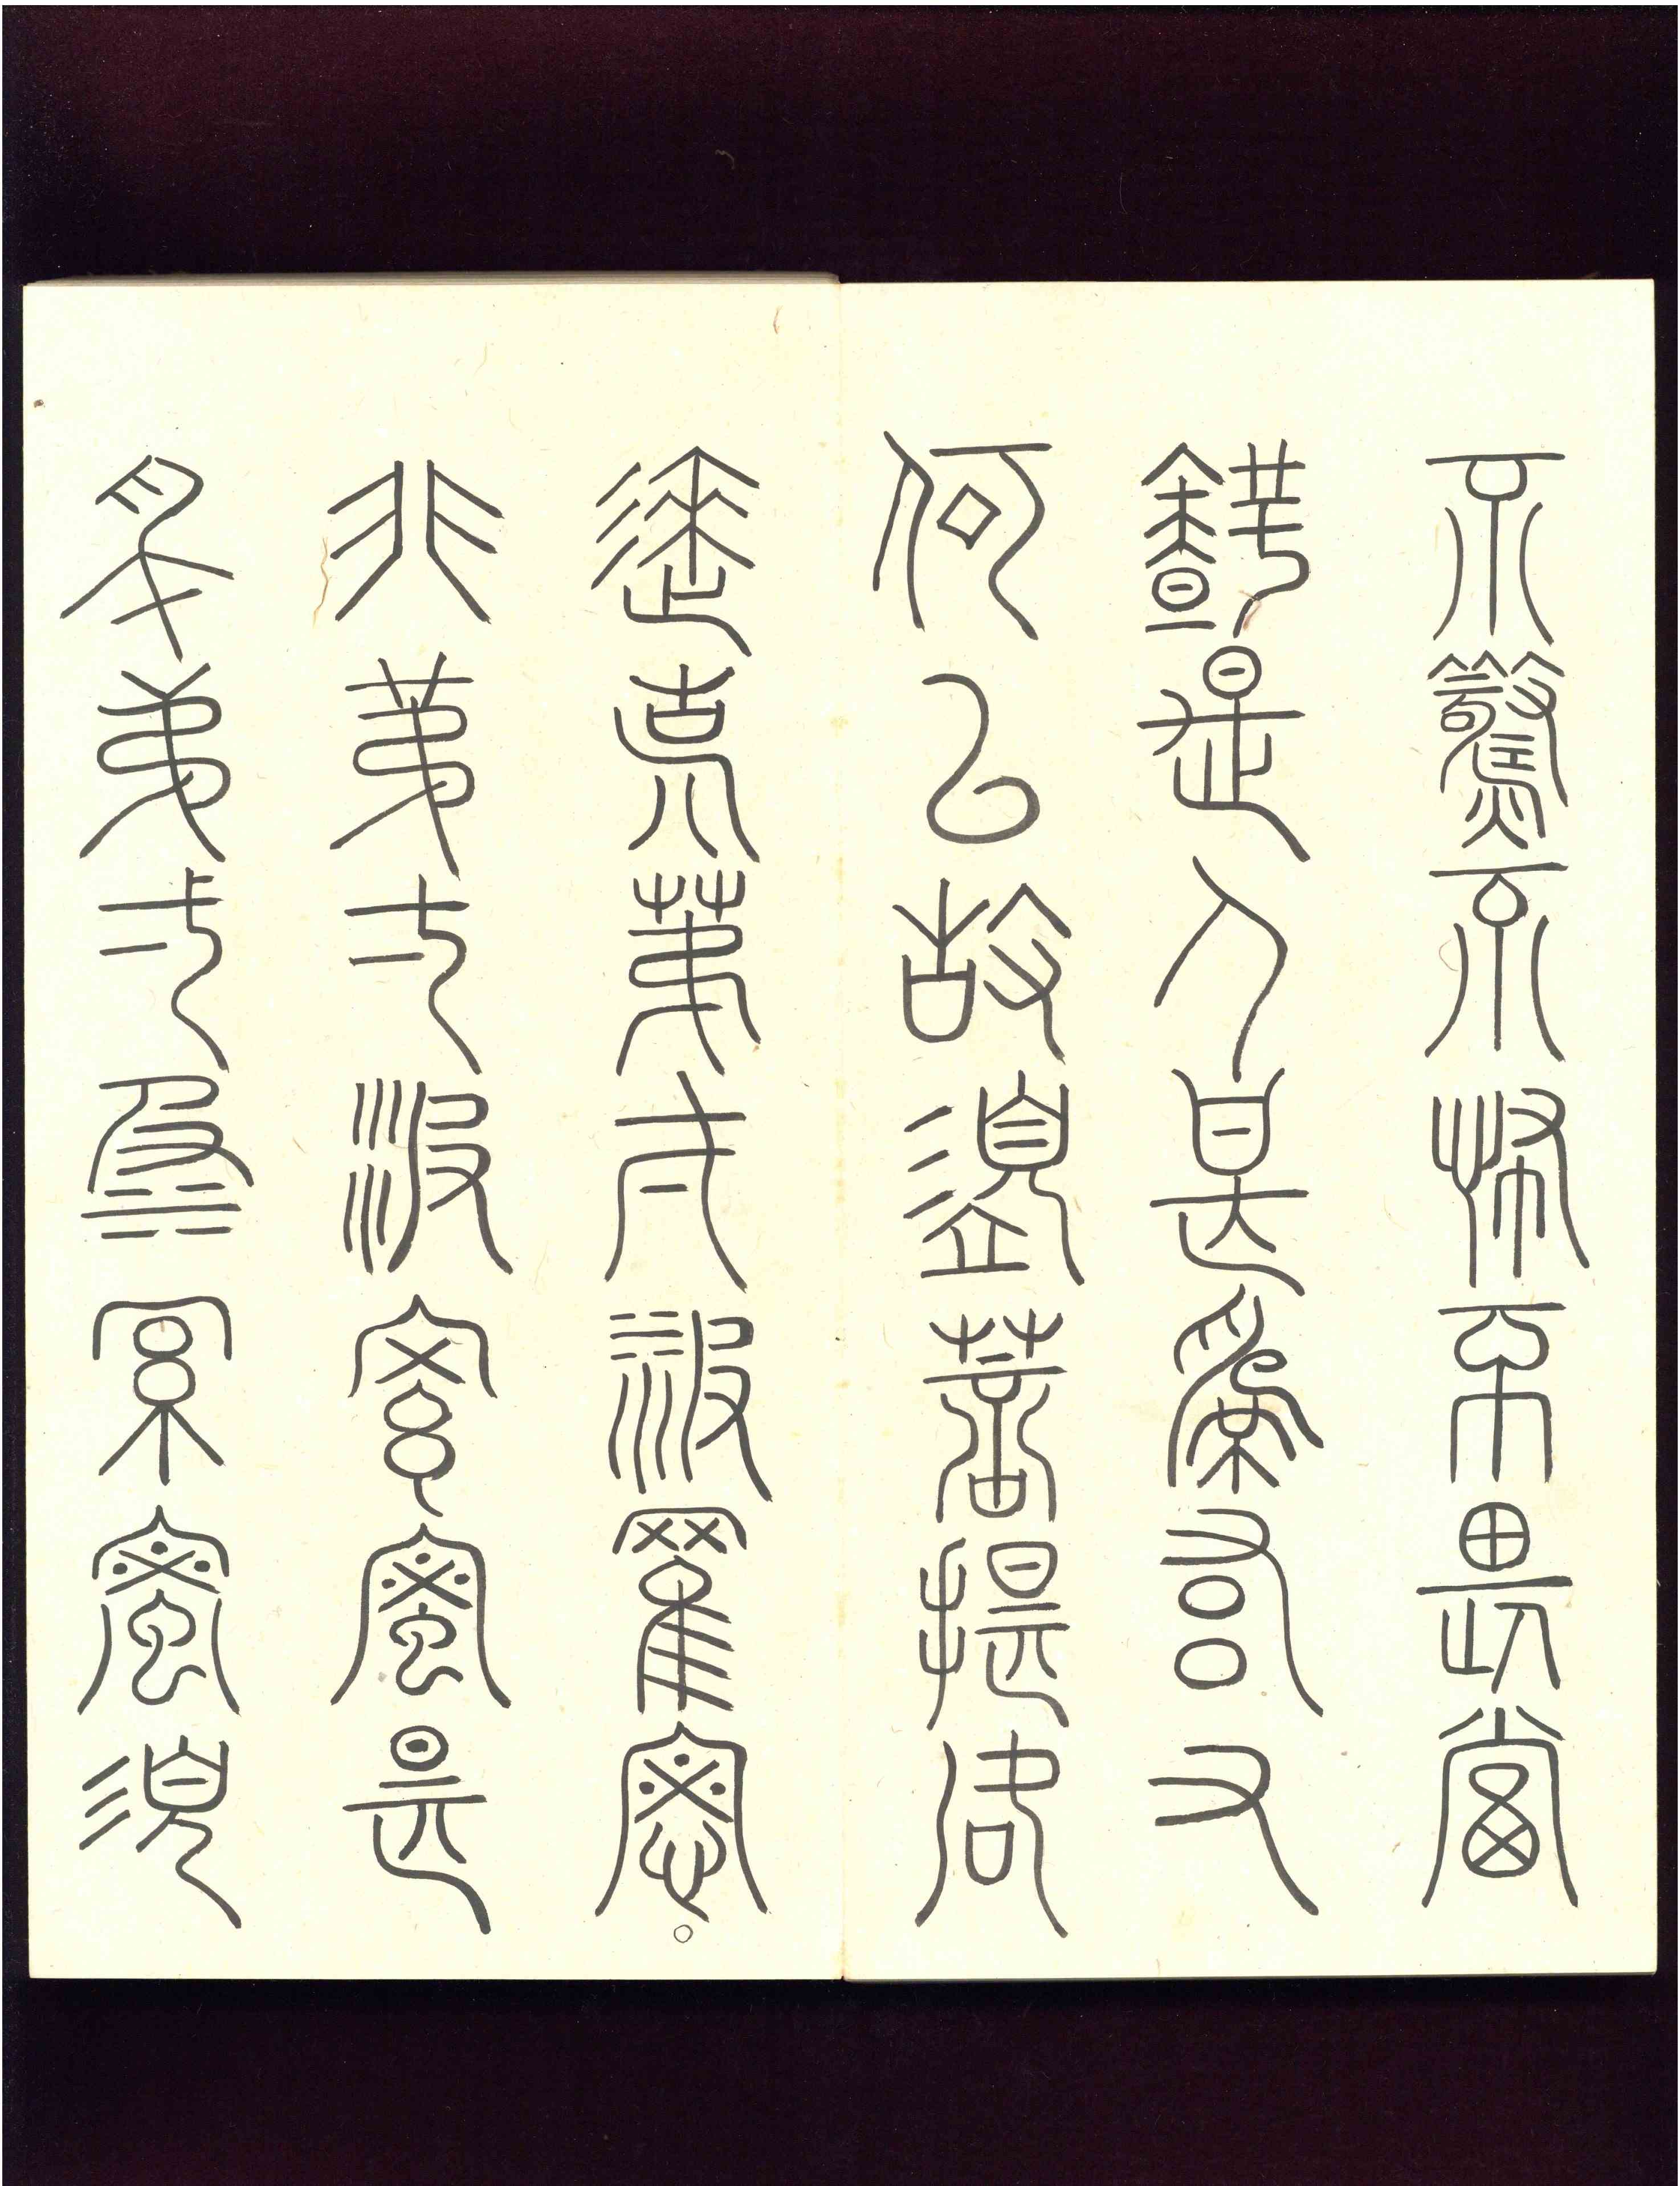 不驚不怖不畏當
知是人甚為希有
何以故須菩提如
來說第一波羅蜜
非第一波羅蜜是
名第一波羅蜜須